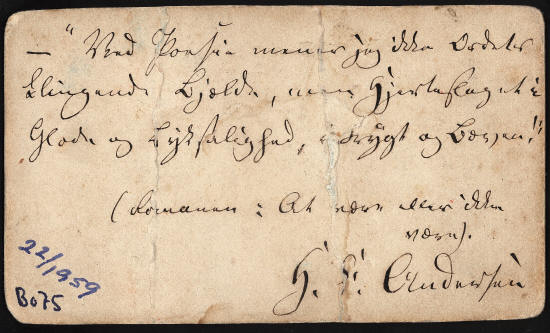 — "Ved Poesie mener jeg ikke Ordets
klingende Bjælde, men Hjerteslaget i
Glæde og Lyksalighed, i Frygt og Bæven!"
(Romanen: At være eller ikke
være).
H. C. Andersen
22/1959
Bo75